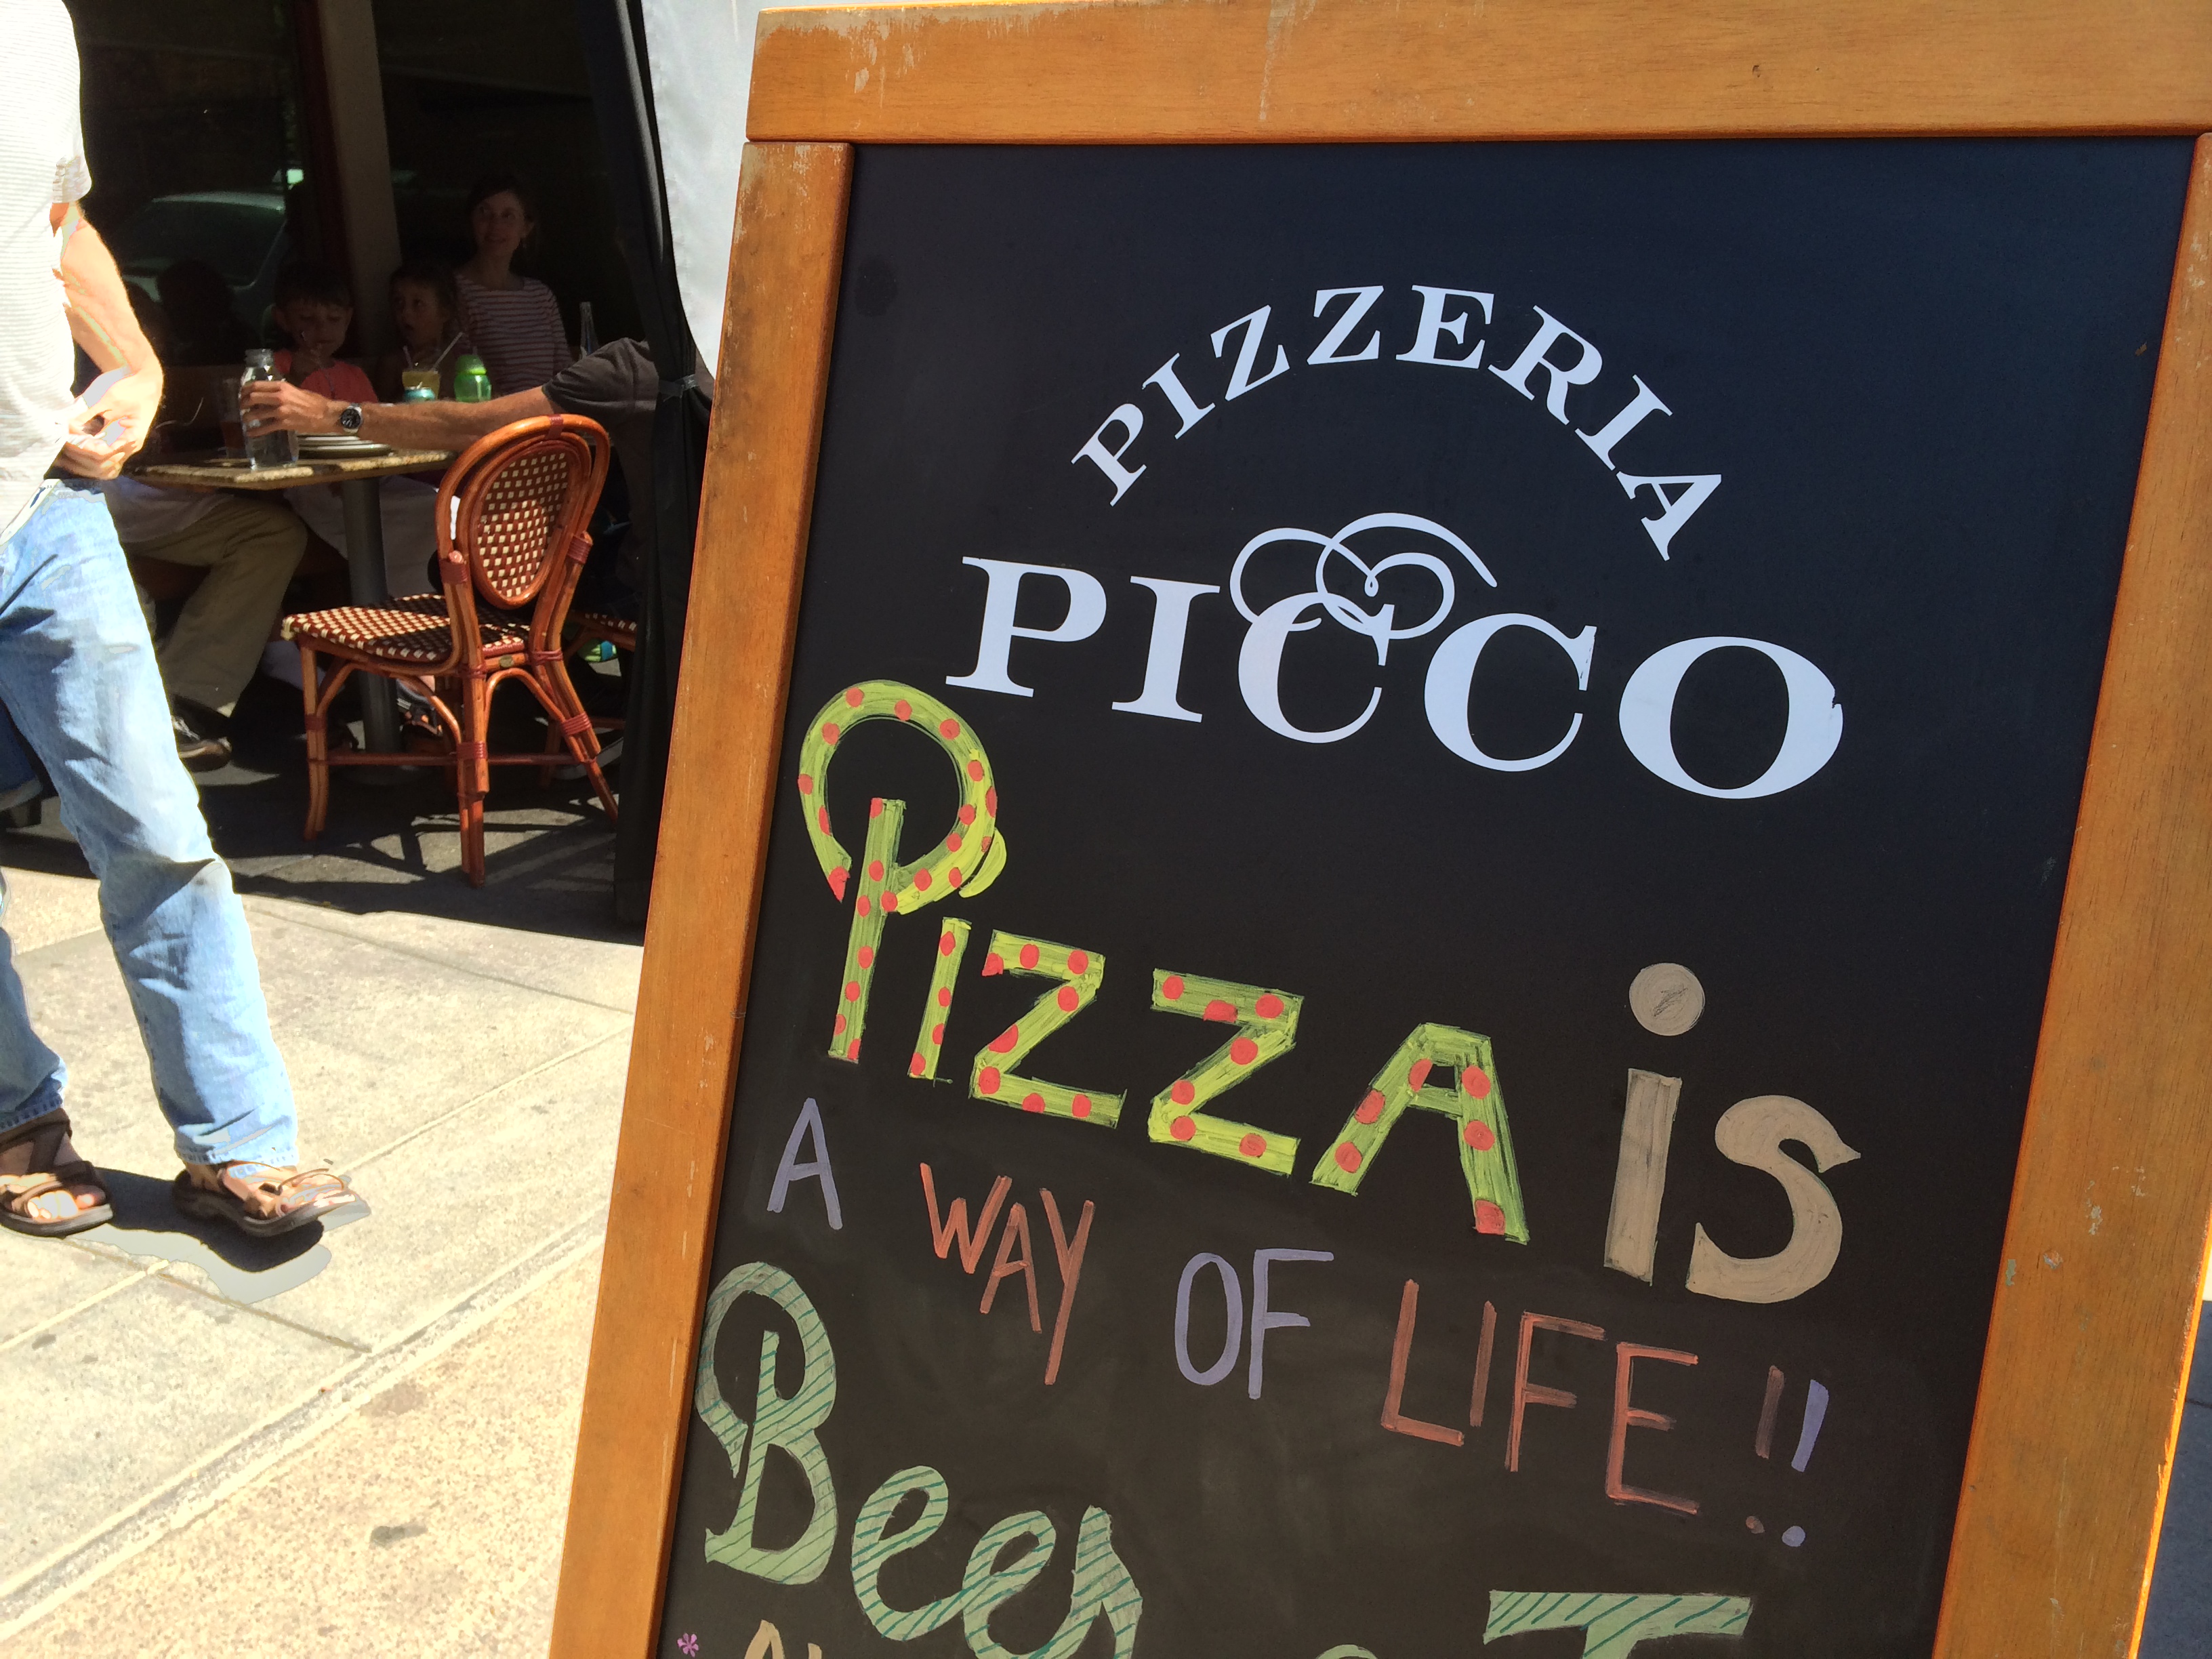 PIZZERIA
PICCO
Pizza is
A WAY OF LIFE!!
Beer